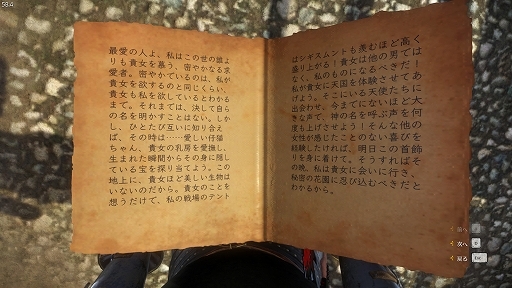 58.4
最愛の人よ、私はこの世の誰よ
りも貴女を慕う、密やかなる求
愛者。密やかでいるのは、私が
貴女を欲するのと同じくらい、
貴女も私を欲しているとわかる
まで。それまでは、決して自ら
の名を明かすことはない。しか
し、ひとたび互いに知り合え
ば、その時は……愛しい仔猫
ちゃん、貴女の乳房を愛撫し、
生まれた瞬間からその身に隠し
ている宝を探り当てよう。この
地上に、貴女ほど美しい生物は
いないのだから。貴女のことを
想うだけで、私の戦場のテント
はシギスムントも羨むほど高く
盛り上がる！貴女は他の男では
なく、私のものになるべきだ！
私が貴女に天国を体験させてあ
げよう。そこにいる天使たちに
出会わせ。今までにないほど大
きな声で、神の名を呼ぶ声を何
度も上げさせよう！そんな他の
女性が感じたことのない喜びを
経験したければ、明日この首飾
りを身に着けて。そうすればそ
の晩、私は貴女に会いに行き、
秘密の花園に忍び込むべきだと
わかるから。
前へ
次へ
戻る
Esc